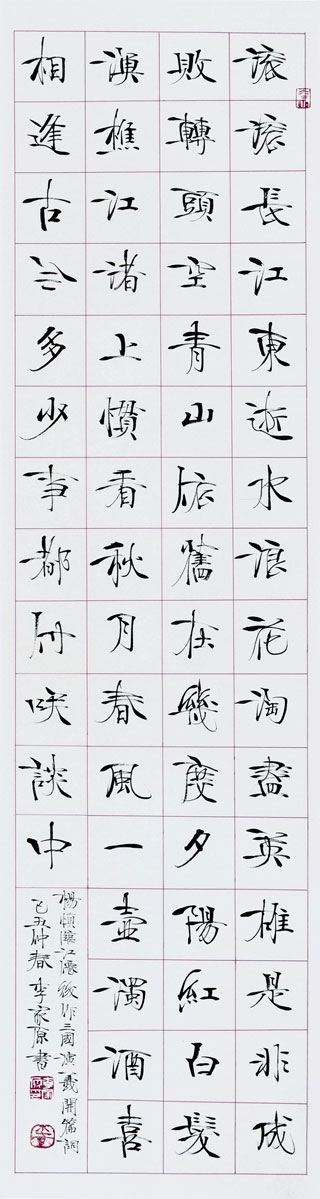 滚滚長江東逝水浪花淘盡英雄是非成
敗轉頭空青山依舊在幾度夕陽紅白髮
漁樵江渚上慣看秋月春風一壺濁酒喜
相逢古今多少事都付咲談中
楊慎臨江僊後作三國演義開篇詞
己丑仲春李家原書